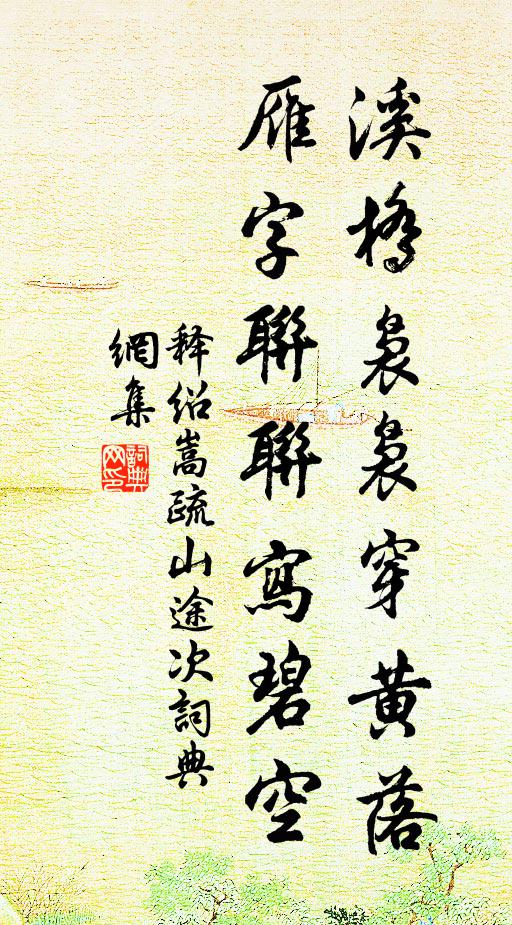 溪橋裊裊穿黃落
雁字聯聯寫碧空
释绍嵩疏山途次詞典
網集
詞典
网印